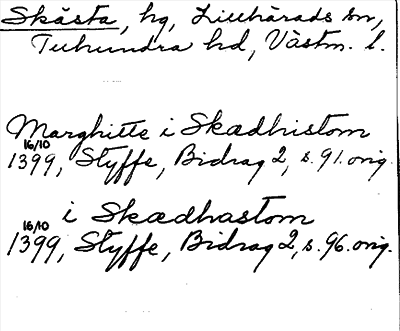 Skästa, hg, Lillhärads sn,
Tuhundra hd, Västm. l.
Marghitte i Skædhistom
16/10
1399, Styffe, Bidrag 2, s. 91. orig.
i Skædhastom
16/10
1399, Styffe, Bidrag 2, s. 96. orig.